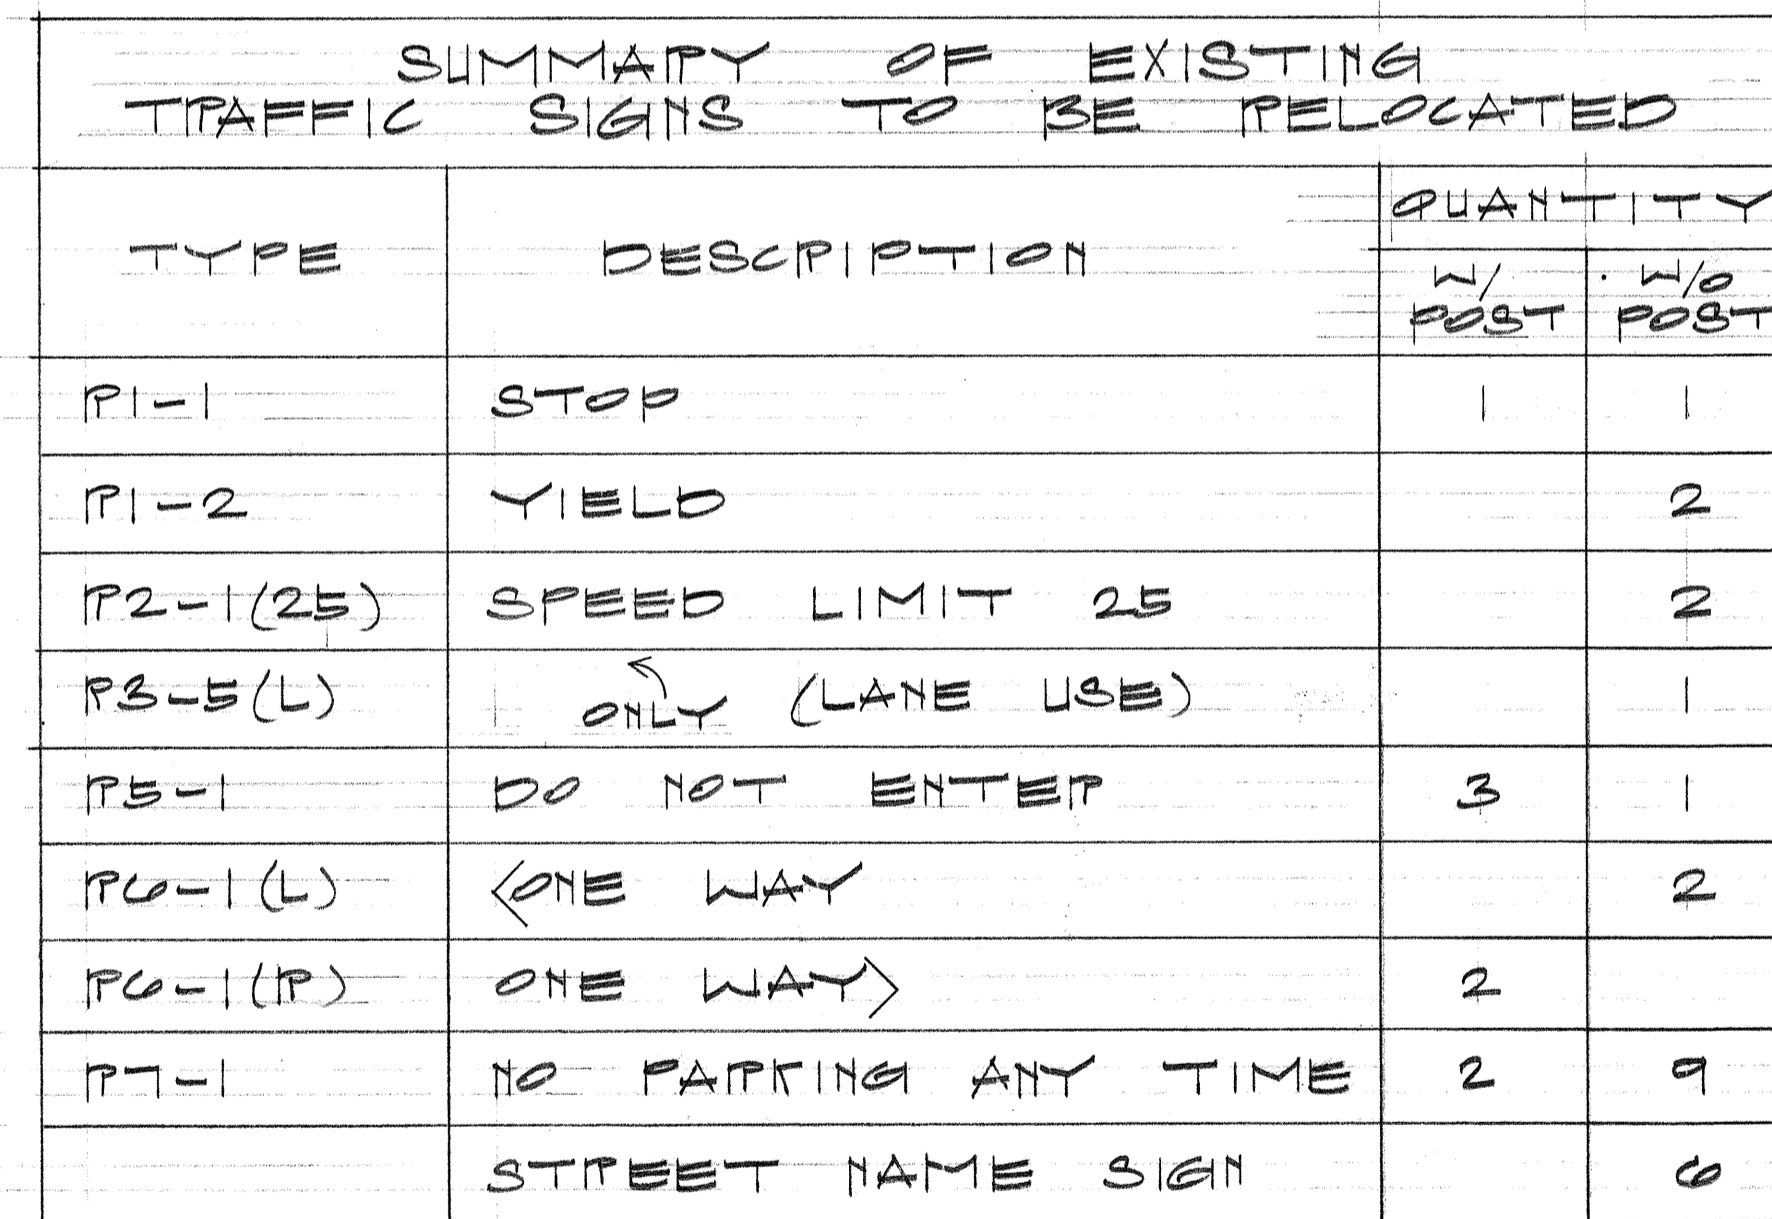 SUMMARY OF EXISTING
TRAFFIC SIGNS TO BE RELOCATED
TYPE DESCRIPTION QUANTITY
W/ POST W/O POST
R1-1 STOP 1 1
R1-2 YIELD 2
R2-1(25) SPEED LIMIT 25 2
R3-5(L) ONLY (LANE USE) 1
R5-1 DO NOT ENTER 3 1
R6-1(L) ONE WAY 2
R6-1(R) ONE WAY 2
R7-1 NO PARKING ANY TIME 2 9
STREET NAME SIGN 6